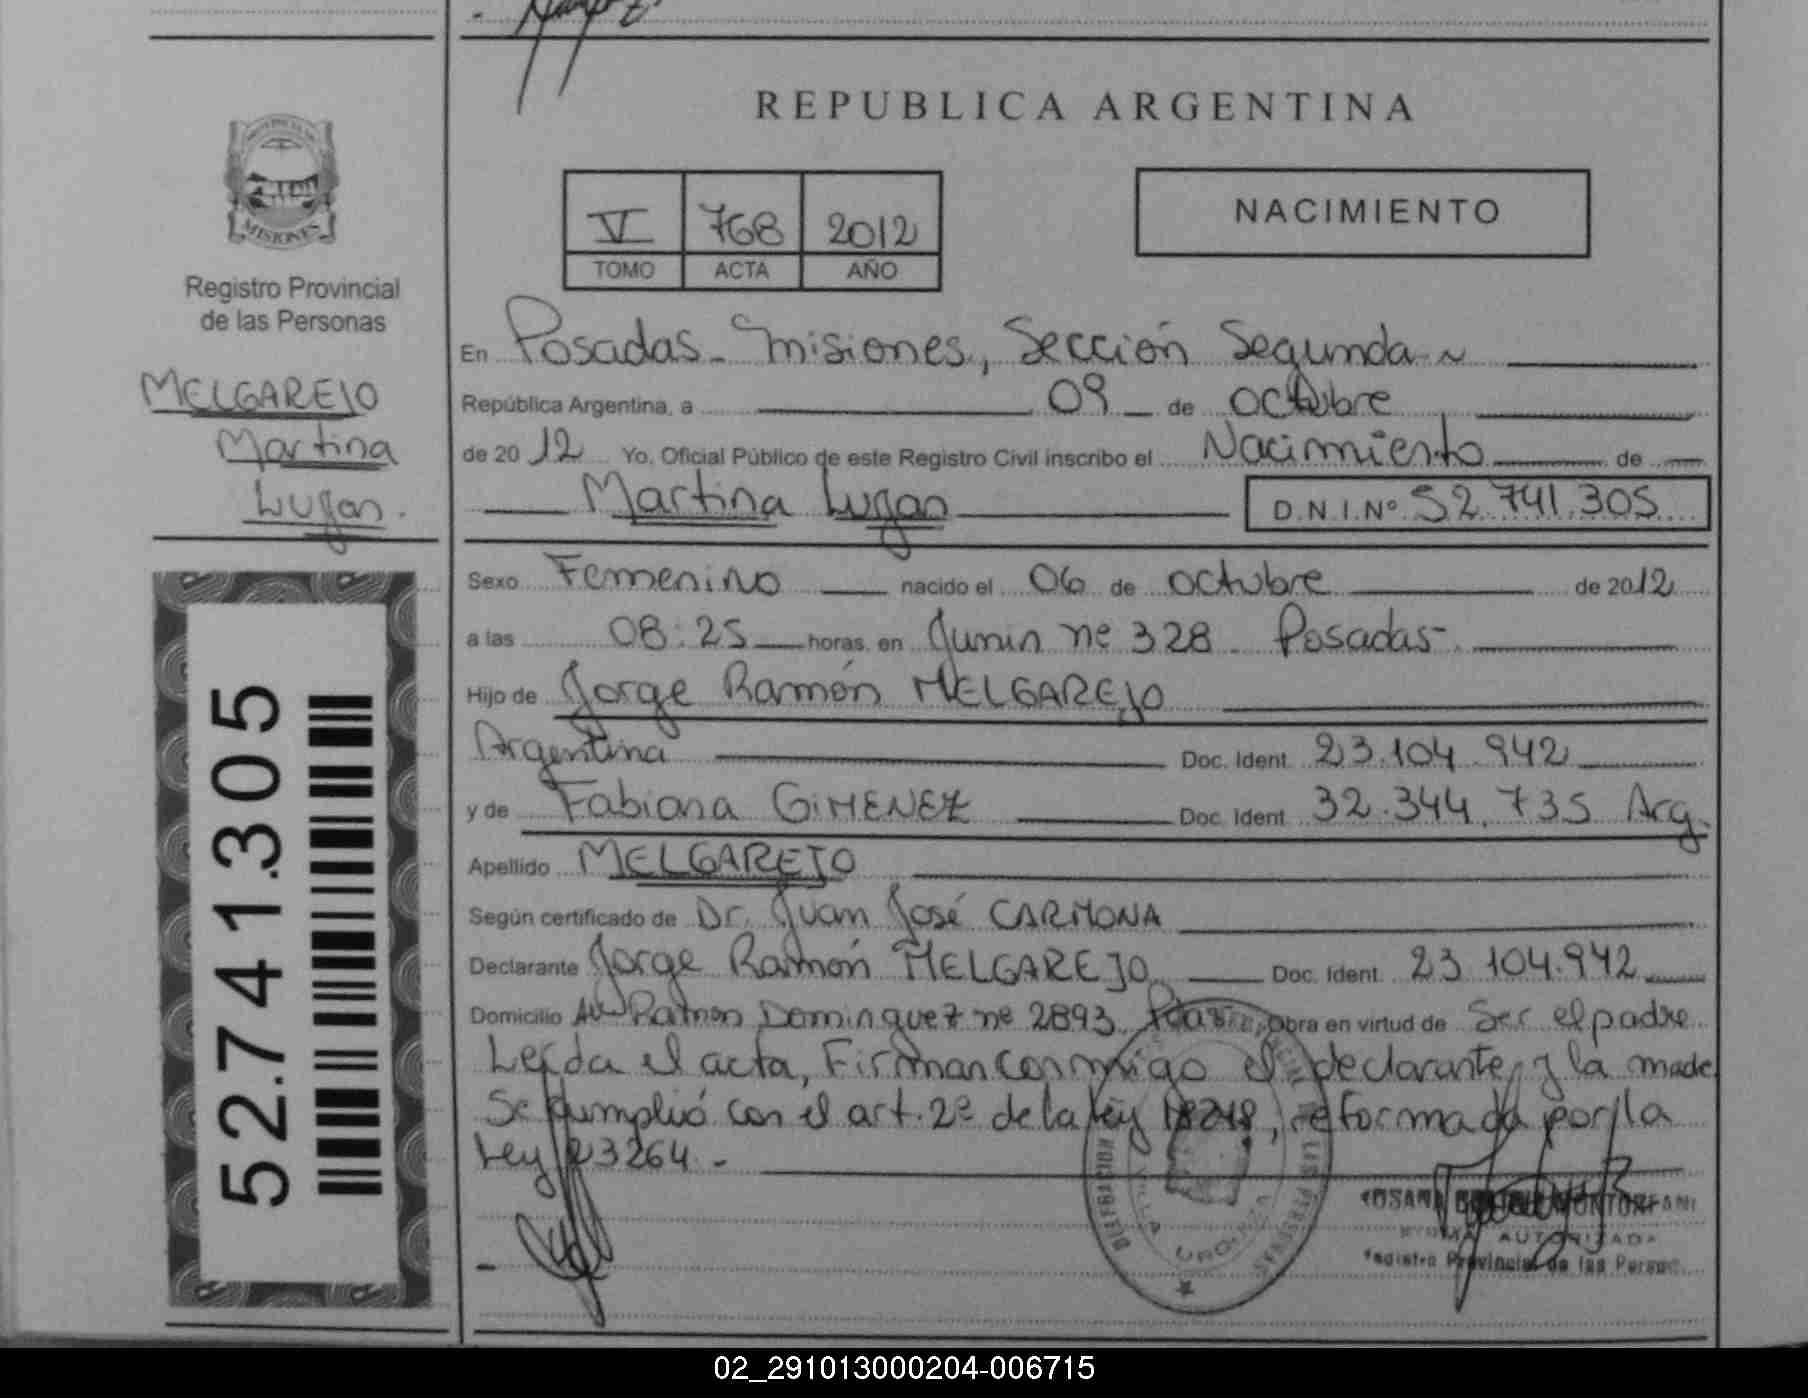 REPUBLICA ARGENTINA
PROVINCIA DE
MISIONES
Registro Provincial
de las Personas
MELGAREJO
Martina
Lujan.
V 768 2012
TOMO ACTA AÑO
NACIMIENTO
En Posadas - Misiones, Sección Segunda ~
República Argentina, a 09 de octubre
de 20 12 Yo, Oficial Público de este Registro Civil inscribo el Nacimiento de
Martina Lujan D.N.I.Nº 52.741.305
Sexo Femenino nacido el 06 de octubre de 2012
a las 08:25 horas, en Junin nº 328 - Posadas -
Hijo de Jorge Ramón MELGAREJO
Argentina Doc. Ident. 23.104.942
y de Fabiana GIMENEZ Doc. Ident. 32.344.735 Arg.
Apellido MELGAREJO
Según certificado de Dr. Juan José CARMONA
Declarante Jorge Ramón MELGAREJO Doc. Ident. 23 104.942
Domicilio Av Ramon Dominguez nº 2893 Obra en virtud de Ser el padre
Leida el acta, Firman conmigo el declarante y la madre
Se cumplió con el art. 2º de la ley 18248, reformada por la
Ley 23264.-
DELEGACION
VILLA URQUIZA
LAS PERSONAS
MONTORFANI
FIRMA AUTORIZADA
Registro Provincial de las Person
52.741.305
02_291013000204-006715